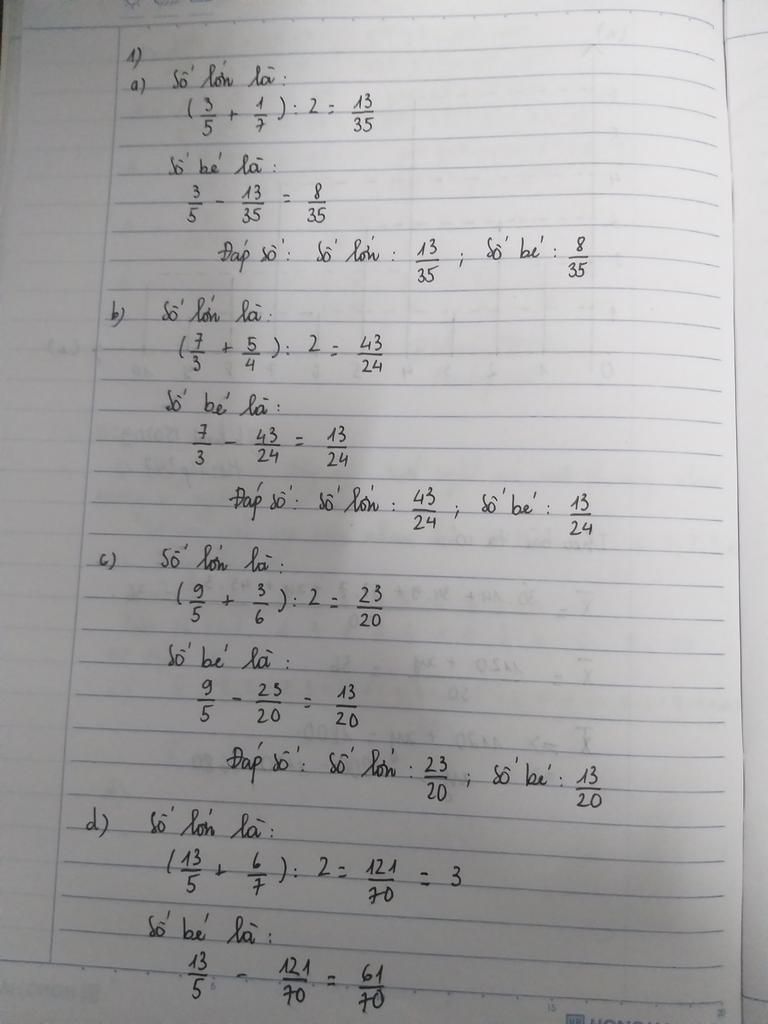 1)
a) Số lớn là:
(3/5 + 1/7) : 2 = 13/35
Số bé là:
3/5 - 13/35 = 8/35
Đáp số: Số lớn: 13/35 ; Số bé: 8/35
b) Số lớn là:
(7/3 + 5/4) : 2 = 43/24
Số bé là:
7/3 - 43/24 = 13/24
Đáp số: Số lớn: 43/24 ; Số bé: 13/24
c) Số lớn là:
(9/5 + 3/6) : 2 = 23/20
Số bé là:
9/5 - 23/20 = 13/20
Đáp số: Số lớn: 23/20 ; Số bé: 13/20
d) Số lớn là:
(13/5 + 6/7) : 2 = 121/70 = 3
Số bé là:
13/5 - 121/70 = 61/70